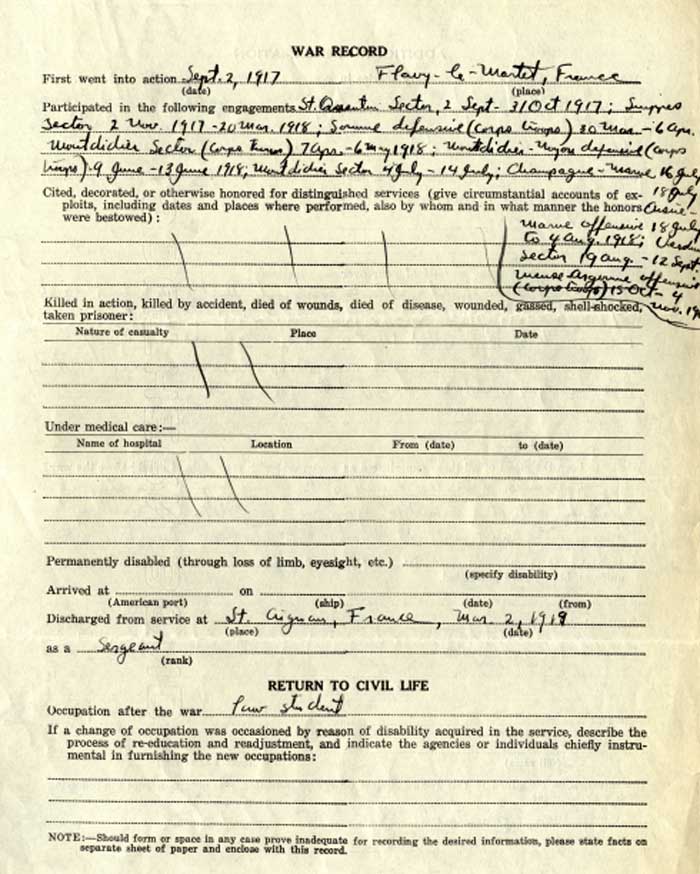 WAR RECORD
First went into action Sept. 2, 1917 Flavy-le-Martel, France
(date) (place)
Participated in the following engagements St. Quentin Sector, 2 Sept - 31 Oct 1917; Suippes
Sector 2 Nov. 1917 - 20 Mar. 1918; Somme defensive (corps troops) 30 Mar. - 6 Apr.
Montdidier Sector (Corps troops) 7 Apr. - 6 May 1918; Montdidier-Noyon defensive (corps
troops) 9 June - 13 June 1918; Montdidier Sector 4 July - 14 July; Champagne-Marne 16 July
18 July
Cited, decorated, or otherwise honored for distinguished services (give circumstantial accounts of ex-
ploits, including dates and places where performed, also by whom and in what manner the honors
were bestowed):
Marne offensive 18 July
to 4 Aug. 1918; Verdun
Sector 19 Aug - 12 Sept
Meuse Argonne offensive
(corps troops) 15 Oct - 4
Nov. 19
Killed in action, killed by accident, died of wounds, died of disease, wounded, gassed, shell-shocked,
taken prisoner:
Nature of casualty Place Date
Under medical care:—
Name of hospital Location From (date) to (date)
Permanently disabled (through loss of limb, eyesight, etc.)
(specify disability)
Arrived at on
(American port) (ship) (date) (from)
Discharged from service at St. Aignan, France, Mar. 2, 1919
(place) (date)
as a Sergeant
(rank)
RETURN TO CIVIL LIFE
Occupation after the war Law student
If a change of occupation was occasioned by reason of disability acquired in the service, describe the
process of re-education and readjustment, and indicate the agencies or individuals chiefly instru-
mental in furnishing the new occupations:
NOTE:—Should form or space in any case prove inadequate for recording the desired information, please state facts on
separate sheet of paper and enclose with this record.